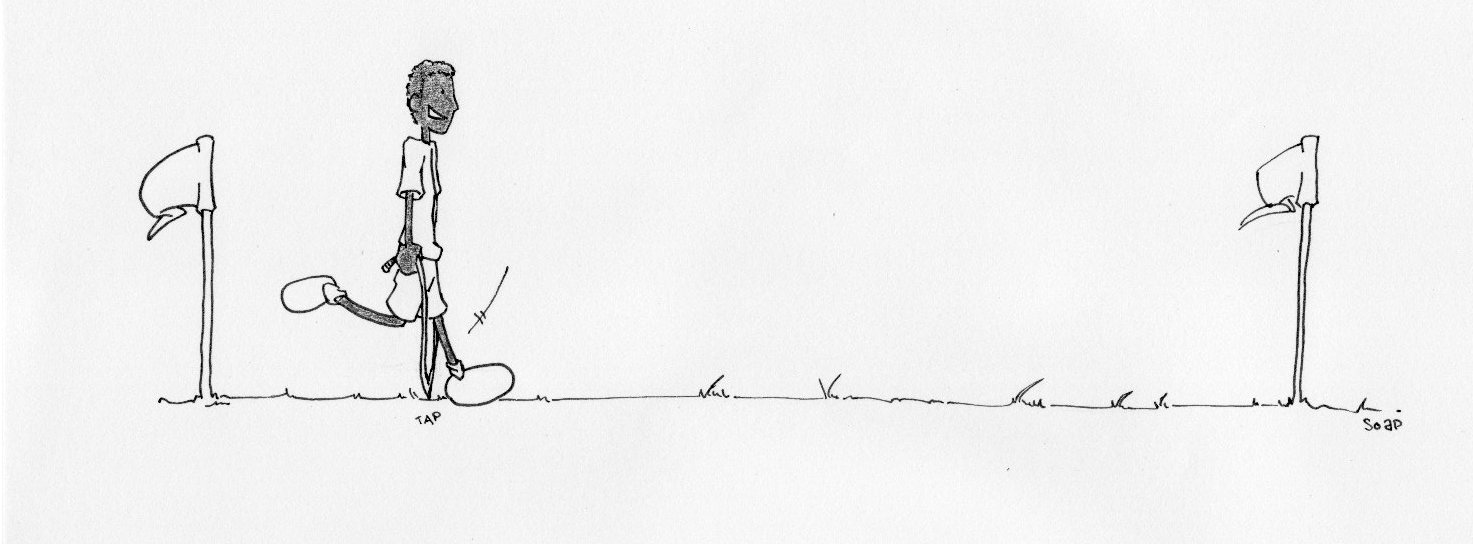 TAP
Soap